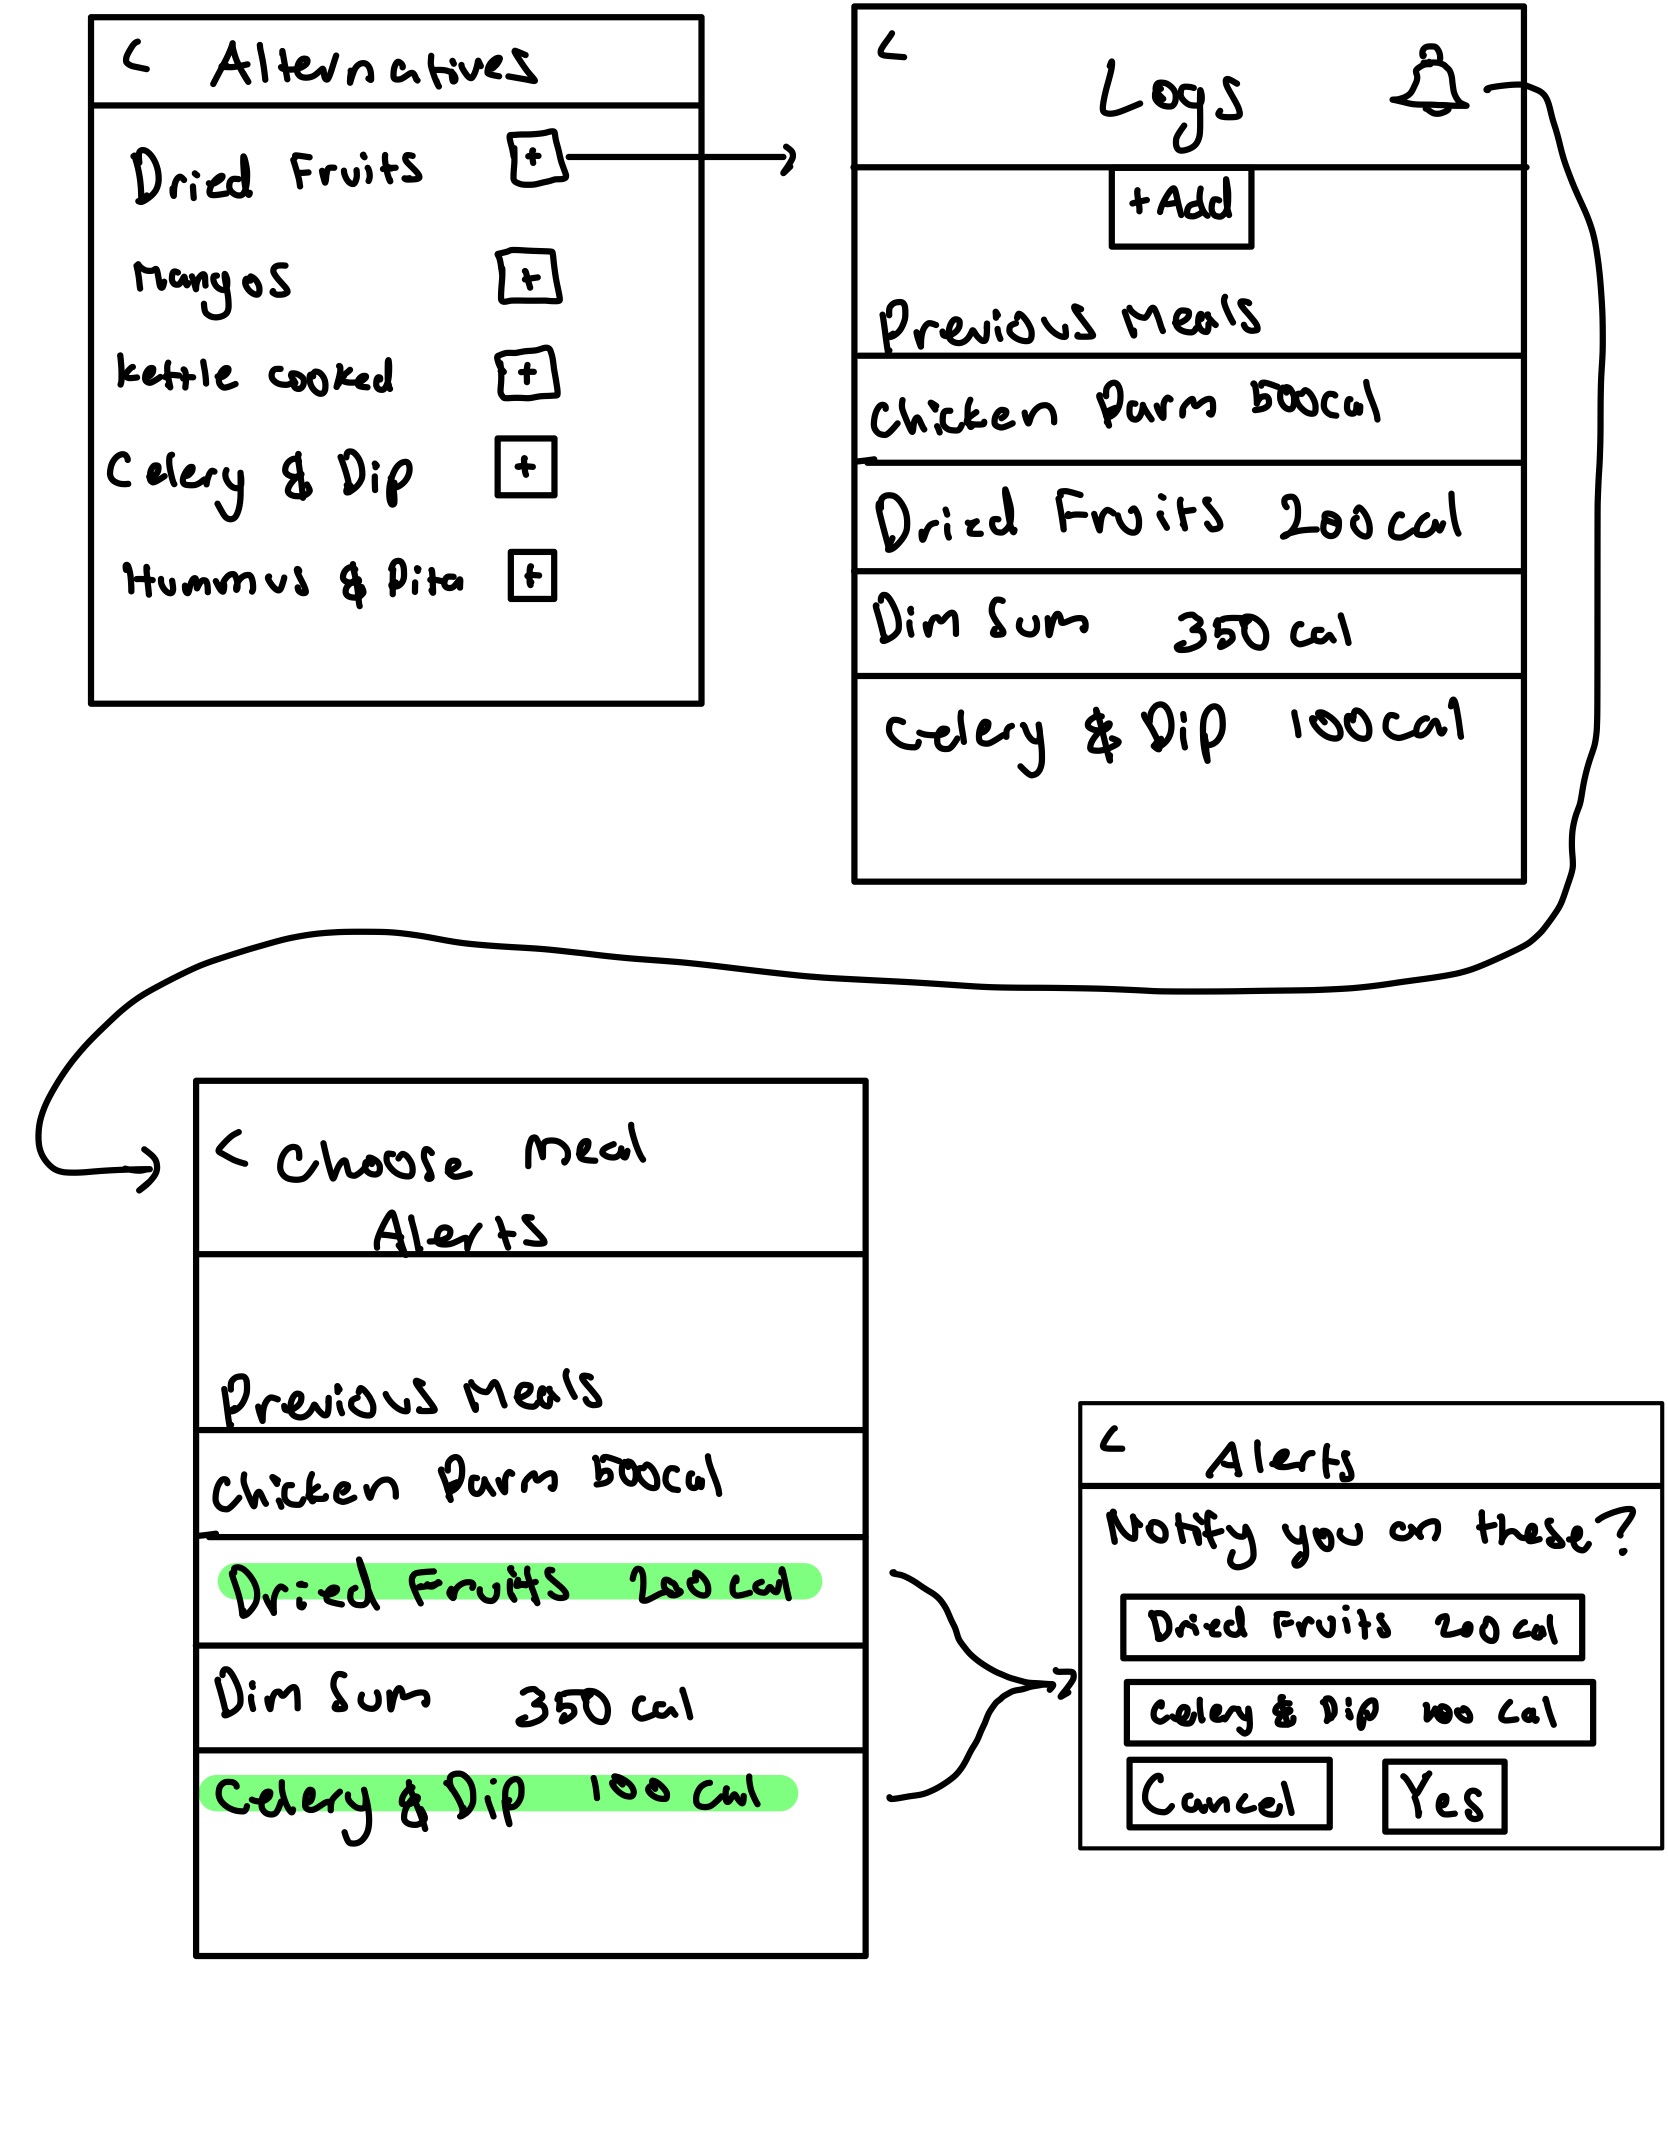 < Alternatives
Dried Fruits +
Mangos +
kettle cooked +
Celery & Dip +
Hummus & Pita +
<
Logs
+Add
Previous Meals
Chicken Parm 500cal
Dried Fruits 200 cal
Dim Sum 350 cal
Celery & Dip 100 cal
< Choose Meal
Alerts
Previous Meals
Chicken Parm 500cal
Dried Fruits 200 cal
Dim Sum 350 cal
Celery & Dip 100 cal
< Alerts
Notify you on these?
Dried Fruits 200 cal
Celery & Dip 100 cal
Cancel Yes